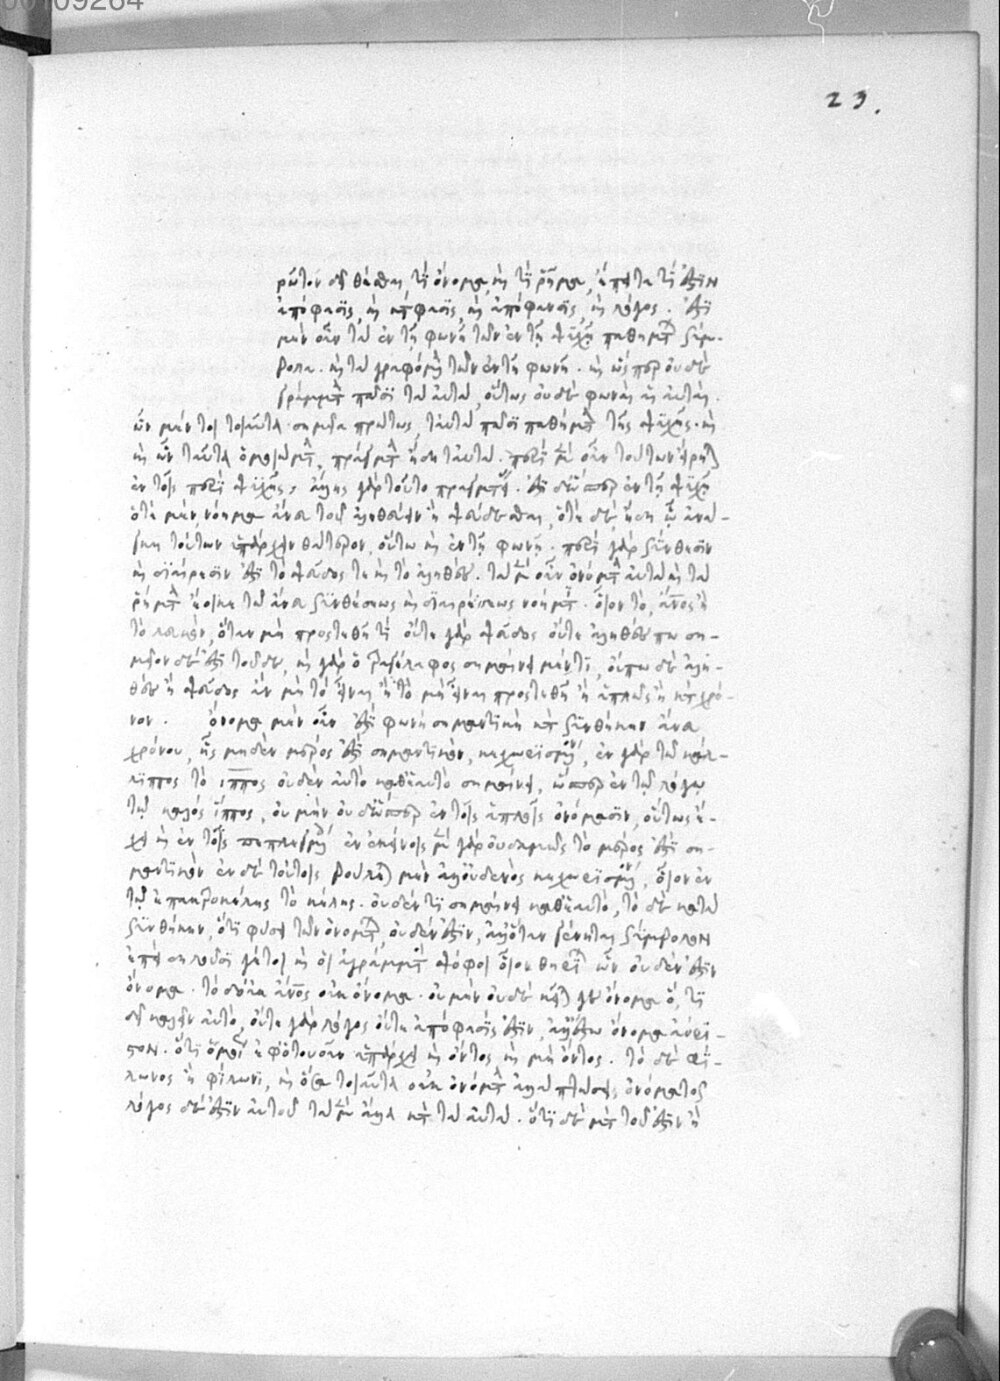 00109264
23.
ρῶτον δεῖ θέσθαι, τί ὄνομα, καὶ τί ῥῆμα, ἔπειτα τί ἐστὶν
ἀπόφασις, καὶ κατάφασις, καὶ ἀπόφανσις, καὶ λόγος. ἔστι
μὲν οὖν τὰ ἐν τῇ φωνῇ τῶν ἐν τῇ ψυχῇ παθημάτων σύμ-
βολα. καὶ τὰ γραφόμενα τῶν ἐν τῇ φωνῇ. καὶ ὥσπερ οὐδὲ
γράμματα πᾶσι τὰ αὐτά, οὕτως οὐδὲ φωναὶ αἱ αὐταί.
ὧν μέντοι τοιαῦτα σημεῖα πρώτως, ταὐτὰ πᾶσι παθήματα τῆς ψυχῆς. καὶ
καὶ ὧν ταῦτα ὁμοιώματα, πράγματα ἤδη ταὐτά. περὶ μὲν οὖν τούτων εἴρηται
ἐν τοῖς περὶ ψυχῆς, ἄλλης γὰρ τοῦτο πραγματείας. ἔστι δ' ὥσπερ ἐν τῇ ψυχῇ
ὁτὲ μὲν νόημα ἄνευ τοῦ ἀληθεύειν ἢ ψεύδεσθαι, ὁτὲ δὲ ἤδη ᾧ ἀνάγ-
κη τούτων ὑπάρχειν θάτερον, οὕτω καὶ ἐν τῇ φωνῇ. περὶ γὰρ σύνθεσιν
καὶ διαίρεσίν ἐστι τὸ ψεῦδός τε καὶ τὸ ἀληθές. τὰ μὲν οὖν ὀνόματα αὐτὰ καὶ τὰ
ῥήματα ἔοικε τῷ ἄνευ συνθέσεως καὶ διαιρέσεως νοήματι. οἷον τὸ, ἄνθρωπος ἢ
τὸ λευκόν, ὅταν μὴ προστεθῇ τί οὔτε γὰρ ψεῦδος οὔτε ἀληθές πω ση-
μεῖον δ' ἐστὶ τοῦδε, καὶ γὰρ ὁ τραγέλαφος σημαίνει μέν τι, οὔπω δὲ ἀλη-
θὲς ἢ ψεῦδος ἂν μὴ τὸ εἶναι ἢ τὸ μὴ εἶναι προστεθῇ ἢ ἁπλῶς ἢ κατὰ χρό-
νον. ὄνομα μὲν οὖν ἐστὶ φωνὴ σημαντικὴ κατὰ συνθήκην ἄνευ
χρόνου, ἧς μηδὲν μέρος ἐστὶ σημαντικὸν, κεχωρισμένον, ἐν γὰρ τῷ κάλ-
λιππος τὸ ἵππος οὐδὲν αὐτὸ καθ' ἑαυτὸ σημαίνει, ὥσπερ ἐν τῷ λόγῳ
τῷ καλὸς ἵππος, οὐ μὴν οὐδ' ὥσπερ ἐν τοῖς ἁπλοῖς ὀνόμασιν, οὕτως ἔ-
χει καὶ ἐν τοῖς πεπλεγμένοις ἐν ἐκείνοις μὲν γὰρ οὐδαμῶς τὸ μέρος ἐστὶ ση-
μαντικὸν ἐν δὲ τούτοις βούλεται μὲν ἀλλ' οὐδενὸς κεχωρισμένον, οἷον ἐν
τῷ ἐπακτροκέλης τὸ κέλης. οὐδέν τι σημαίνει καθ' ἑαυτό, τὸ δὲ κατὰ
συνθήκην, ὅτι φύσει τῶν ὀνομάτων, οὐδέν ἐστιν, ἀλλ' ὅταν γένηται σύμβολον
ἐπεὶ δηλοῦσί γέ τοι καὶ οἱ ἀγράμματοι ψόφοι οἷον θηρίων ὧν οὐδέν ἐστιν
ὄνομα. τὸ δ' οὐκ ἄνθρωπος οὐκ ὄνομα. οὐ μὴν οὐδὲ κεῖται γε ὄνομα ὅ, τι
δεῖ καλεῖν αὐτό, οὔτε γὰρ λόγος οὔτε ἀπόφασίς ἐστιν, ἀλλ' ἔστω ὄνομα ἀόρι-
στον. ὅτι ὁμοίως ἐφ' ὁτουοῦν ὑπάρχει καὶ ὄντος, καὶ μὴ ὄντος. τὸ δὲ φί-
λωνος ἢ φίλωνι, καὶ ὅσα τοιαῦτα οὐκ ὀνόματα ἀλλὰ πτώσεις ὀνόματος
λόγος δ' ἐστὶν αὐτοῦ τὰ μὲν ἄλλα κατὰ τὰ αὐτά. ὅτι δὲ μετὰ τοῦ ἐστὶν ἢ